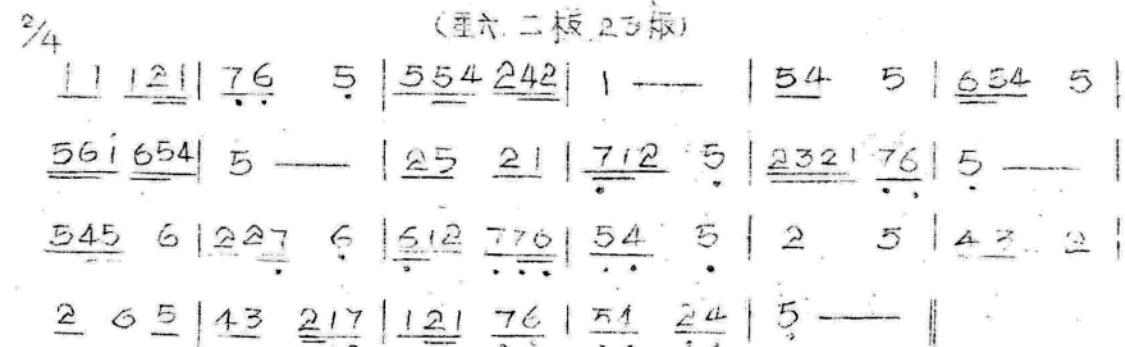 2/4 (重六 二板 23板)
1 1 1 2 1 | 7 6 5 | 5 5 4 2 4 2 | 1 — | 5 4 5 | 6 5 4 5 |
5 6 i 6 5 4 | 5 — | 2 5 2 1 | 7 1 2 5 | 2 3 2 1 7 6 | 5 — |
5 4 5 6 | 2 2 7 6 | 6 1 2 7 7 6 | 5 4 5 | 2 5 | 4 3 2 |
2 6 5 | 4 3 2 1 7 | 1 2 1 7 6 | 5 4 2 4 | 5 — ‖